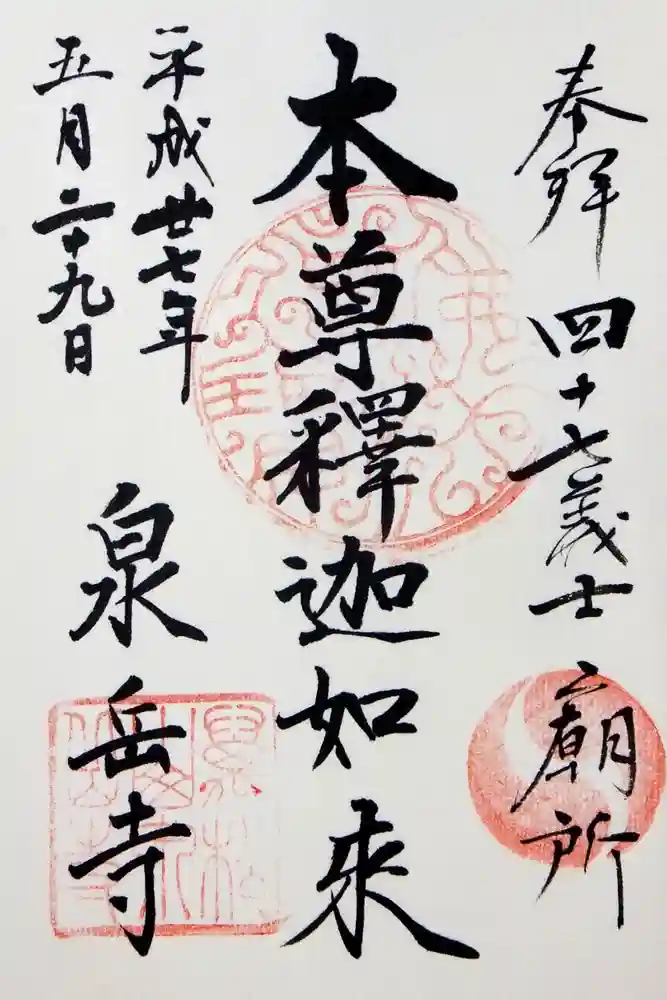 奉拝 四十七義士廟所
本尊釋迦如來
平成廿七年
五月二十九日
泉岳寺